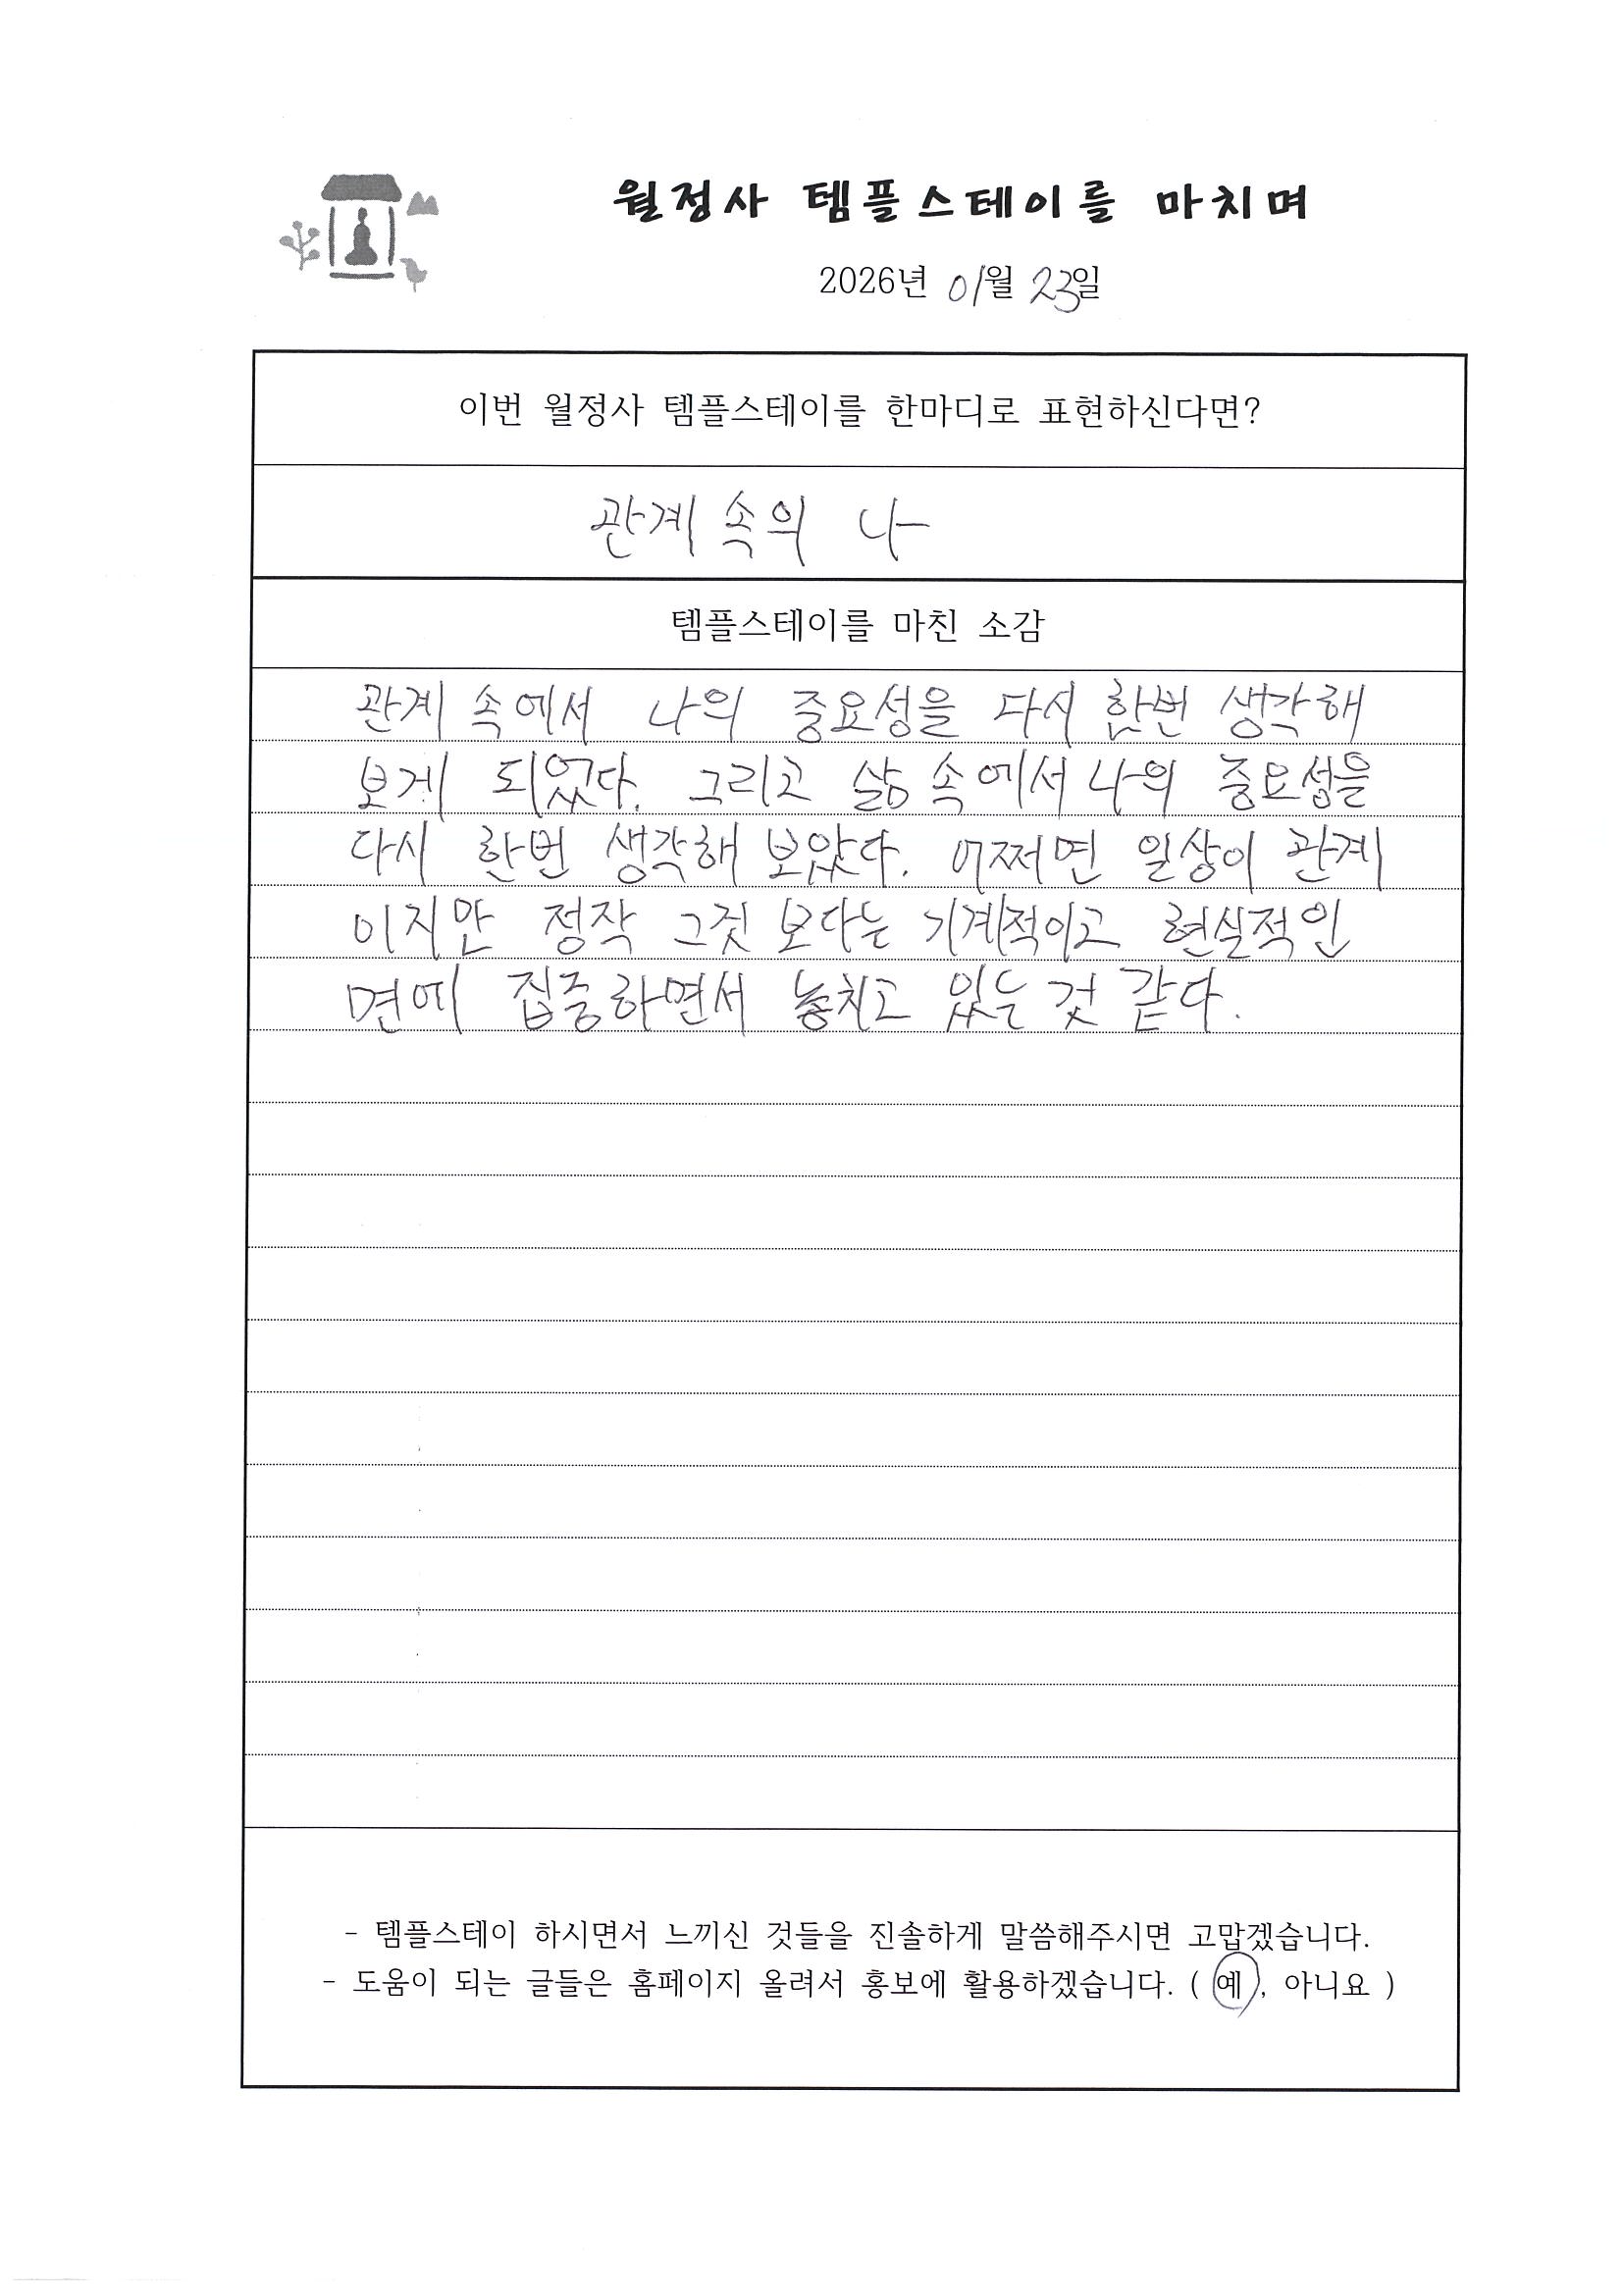 월정사 템플스테이를 마치며
2026년 01월 23일
이번 월정사 템플스테이를 한마디로 표현하신다면?
관계 속의 나
템플스테이를 마친 소감
관계 속에서 나의 중요성을 다시 한번 생각해
보게 되었다. 그리고 삶 속에서 나의 중요성을
다시 한번 생각해 보았다. 어쩌면 일상이 관계
이지만 정작 그것 보다는 기계적이고 현실적인
면에 집중하면서 놓치고 있는 것 같다.
- 템플스테이 하시면서 느끼신 것들을 진솔하게 말씀해주시면 고맙겠습니다.
- 도움이 되는 글들은 홈페이지 올려서 홍보에 활용하겠습니다. ( 예, 아니요 )